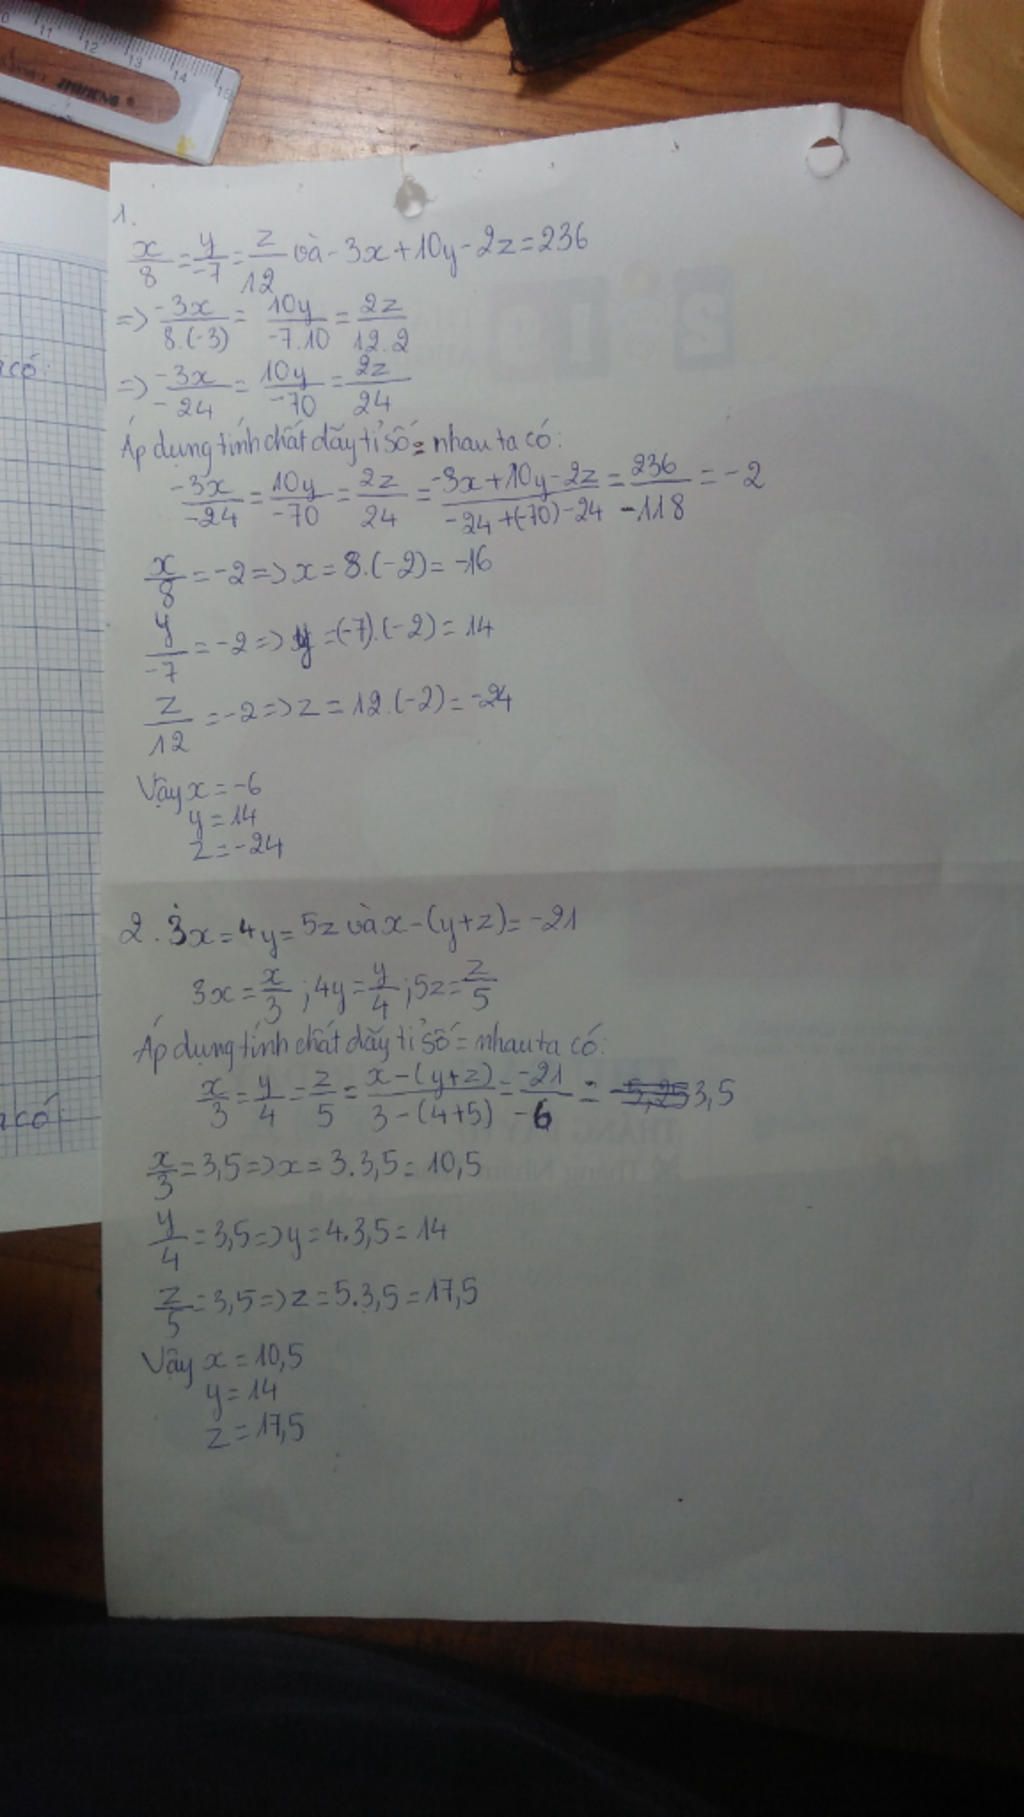 10 11 12 13 14 15
1.
x/8 = y/-7 = z/12 và - 3x + 10y - 2z = 236
=> -3x/8.(-3) = 10y/-7.10 = 2z/12.2
=> -3x/-24 = 10y/-70 = 2z/24
Áp dụng tính chất dãy tỉ số = nhau ta có:
-3x/-24 = 10y/-70 = 2z/24 = -3x+10y-2z/-24+(-70)-24 = 236/-118 = -2
x/8 = -2 => x = 8.(-2) = -16
y/-7 = -2 => y = (-7).(-2) = 14
z/12 = -2 => z = 12.(-2) = -24
Vậy x = -6
y = 14
z = -24
2. 3x = 4y = 5z và x - (y+z) = -21
3x = x/3 ; 4y = y/4 ; 5z = z/5
Áp dụng tính chất dãy tỉ số = nhau ta có:
x/3 = y/4 = z/5 = x-(y+z)/3-(4+5) = -21/-6 = 3,5
x/3 = 3,5 => x = 3.3,5 = 10,5
y/4 = 3,5 => y = 4.3,5 = 14
z/5 = 3,5 => z = 5.3,5 = 17,5
Vậy x = 10,5
y = 14
z = 17,5
có:
có